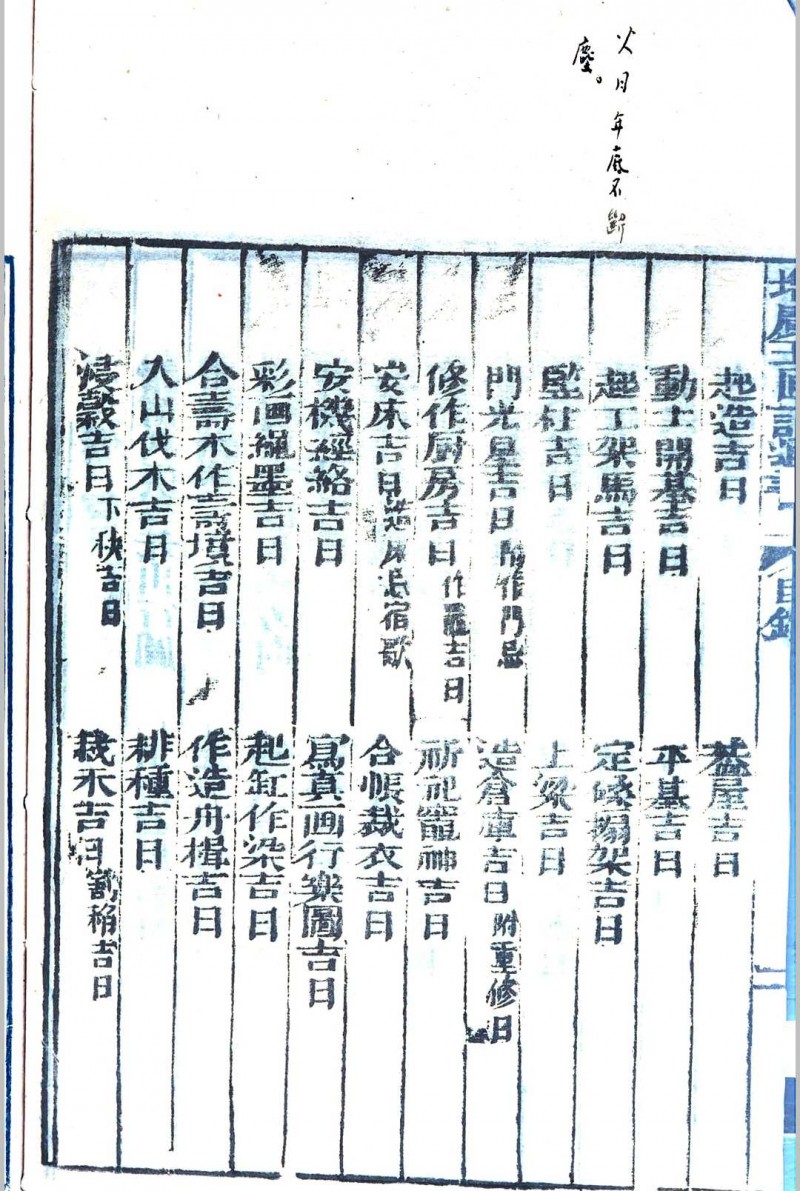 火日年底不斷
塵。
目錄
起造吉日
蓋屋吉日
動土開基吉日
平基吉日
起工架馬吉日
定磉搧架吉日
竪柱吉日
上梁吉日
門光星吉日 附作門忌
造倉庫吉日 附重修日
修作厨房吉日 作竈吉日
祈祀竈神吉日
安床吉日 造床忌宿歌
合帳裁衣吉日
安機經絡吉日
寫真画行樂圖吉日
彩画繩墨吉日
起缸作染吉日
合壽木作壽墳吉日
作造舟楫吉日
入山伐木吉日
耕種吉日
浸穀吉日 下秧吉日
栽禾吉日 割稲吉日